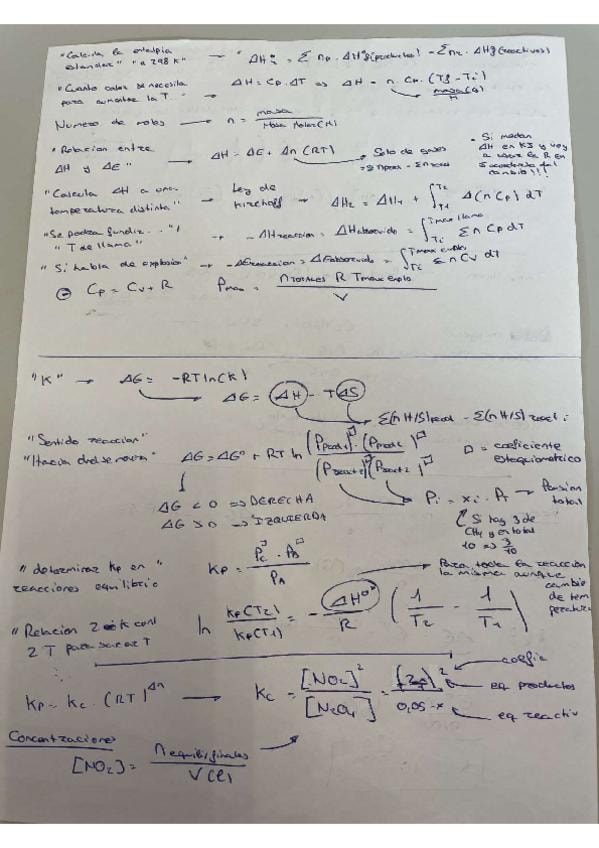 "Calcula la entalpia
estandar" "a 298 K" → "ΔH°r = Σ np · ΔH°f (productos) - Σ nr · ΔHf (reactivos)
"Cuanto calor se necesita
para aumentar la T..." → ΔH = Cp · ΔT ⇒ ΔH = n · Cp · (Tf - Ti)
masa(g)/M
Numero de moles → n = masa / Masa Molar (M)
"Relacion entre
ΔH y ΔE" → ΔH = ΔE + Δn (RT) → Solo de gases
• Si me dan
ΔH en KJ y voy
a usar la R en
"Calcula ΔH a una
temperatura distinta" → Ley de
Kirchoff → ΔH2 = ΔH1 + ∫T1^T2 Δ(n Cp) dT
"Se podra fundir..." /
"T de llama" → - ΔHreaccion = ΔHabsorvido = ∫Ti^Tmax llama Σ n Cp dT
"Si habla de explosion" → - ΔEreaccion = ΔEabsorvido = ∫Ti^Tmax explo Σ n Cv dT
Cp = Cv + R Pmax = nTOTALES R Tmax explo / V
"K" → ΔG = -RT ln(K)
→ ΔG = ΔH - TΔS
→ Σ(n H/S)prod - Σ(n H/S)react
"Sentido reaccion"
ΔG = ΔG° + RT ln
□ = coeficiente
estequiometrico
ΔG < 0 ⇒ DERECHA
ΔG > 0 → IZQUIERDA
Pi = xi · PT → Presion
total
Si hay 3 de
CH4 y en total
10 ⇒ 3/10
"determinar Kp en"
reacciones equilibrio
KP = PC□ · PB□ / PA
Para toda la reacción
la misma aunque
cambie
de tem
peratura
ln Kp(T2) / Kp(T1) = - ΔH° / R ( 1/T2 - 1/T1 )
2 T para sacar T
Kp = Kc · (RT)^Δn → Kc = [NO2]² / [N2O4] = (2x)² / 0,05 - x
coefic
eq productos
eq reactiv
Concentraciones
[NO2] = n equilibrio/finales / V (l)